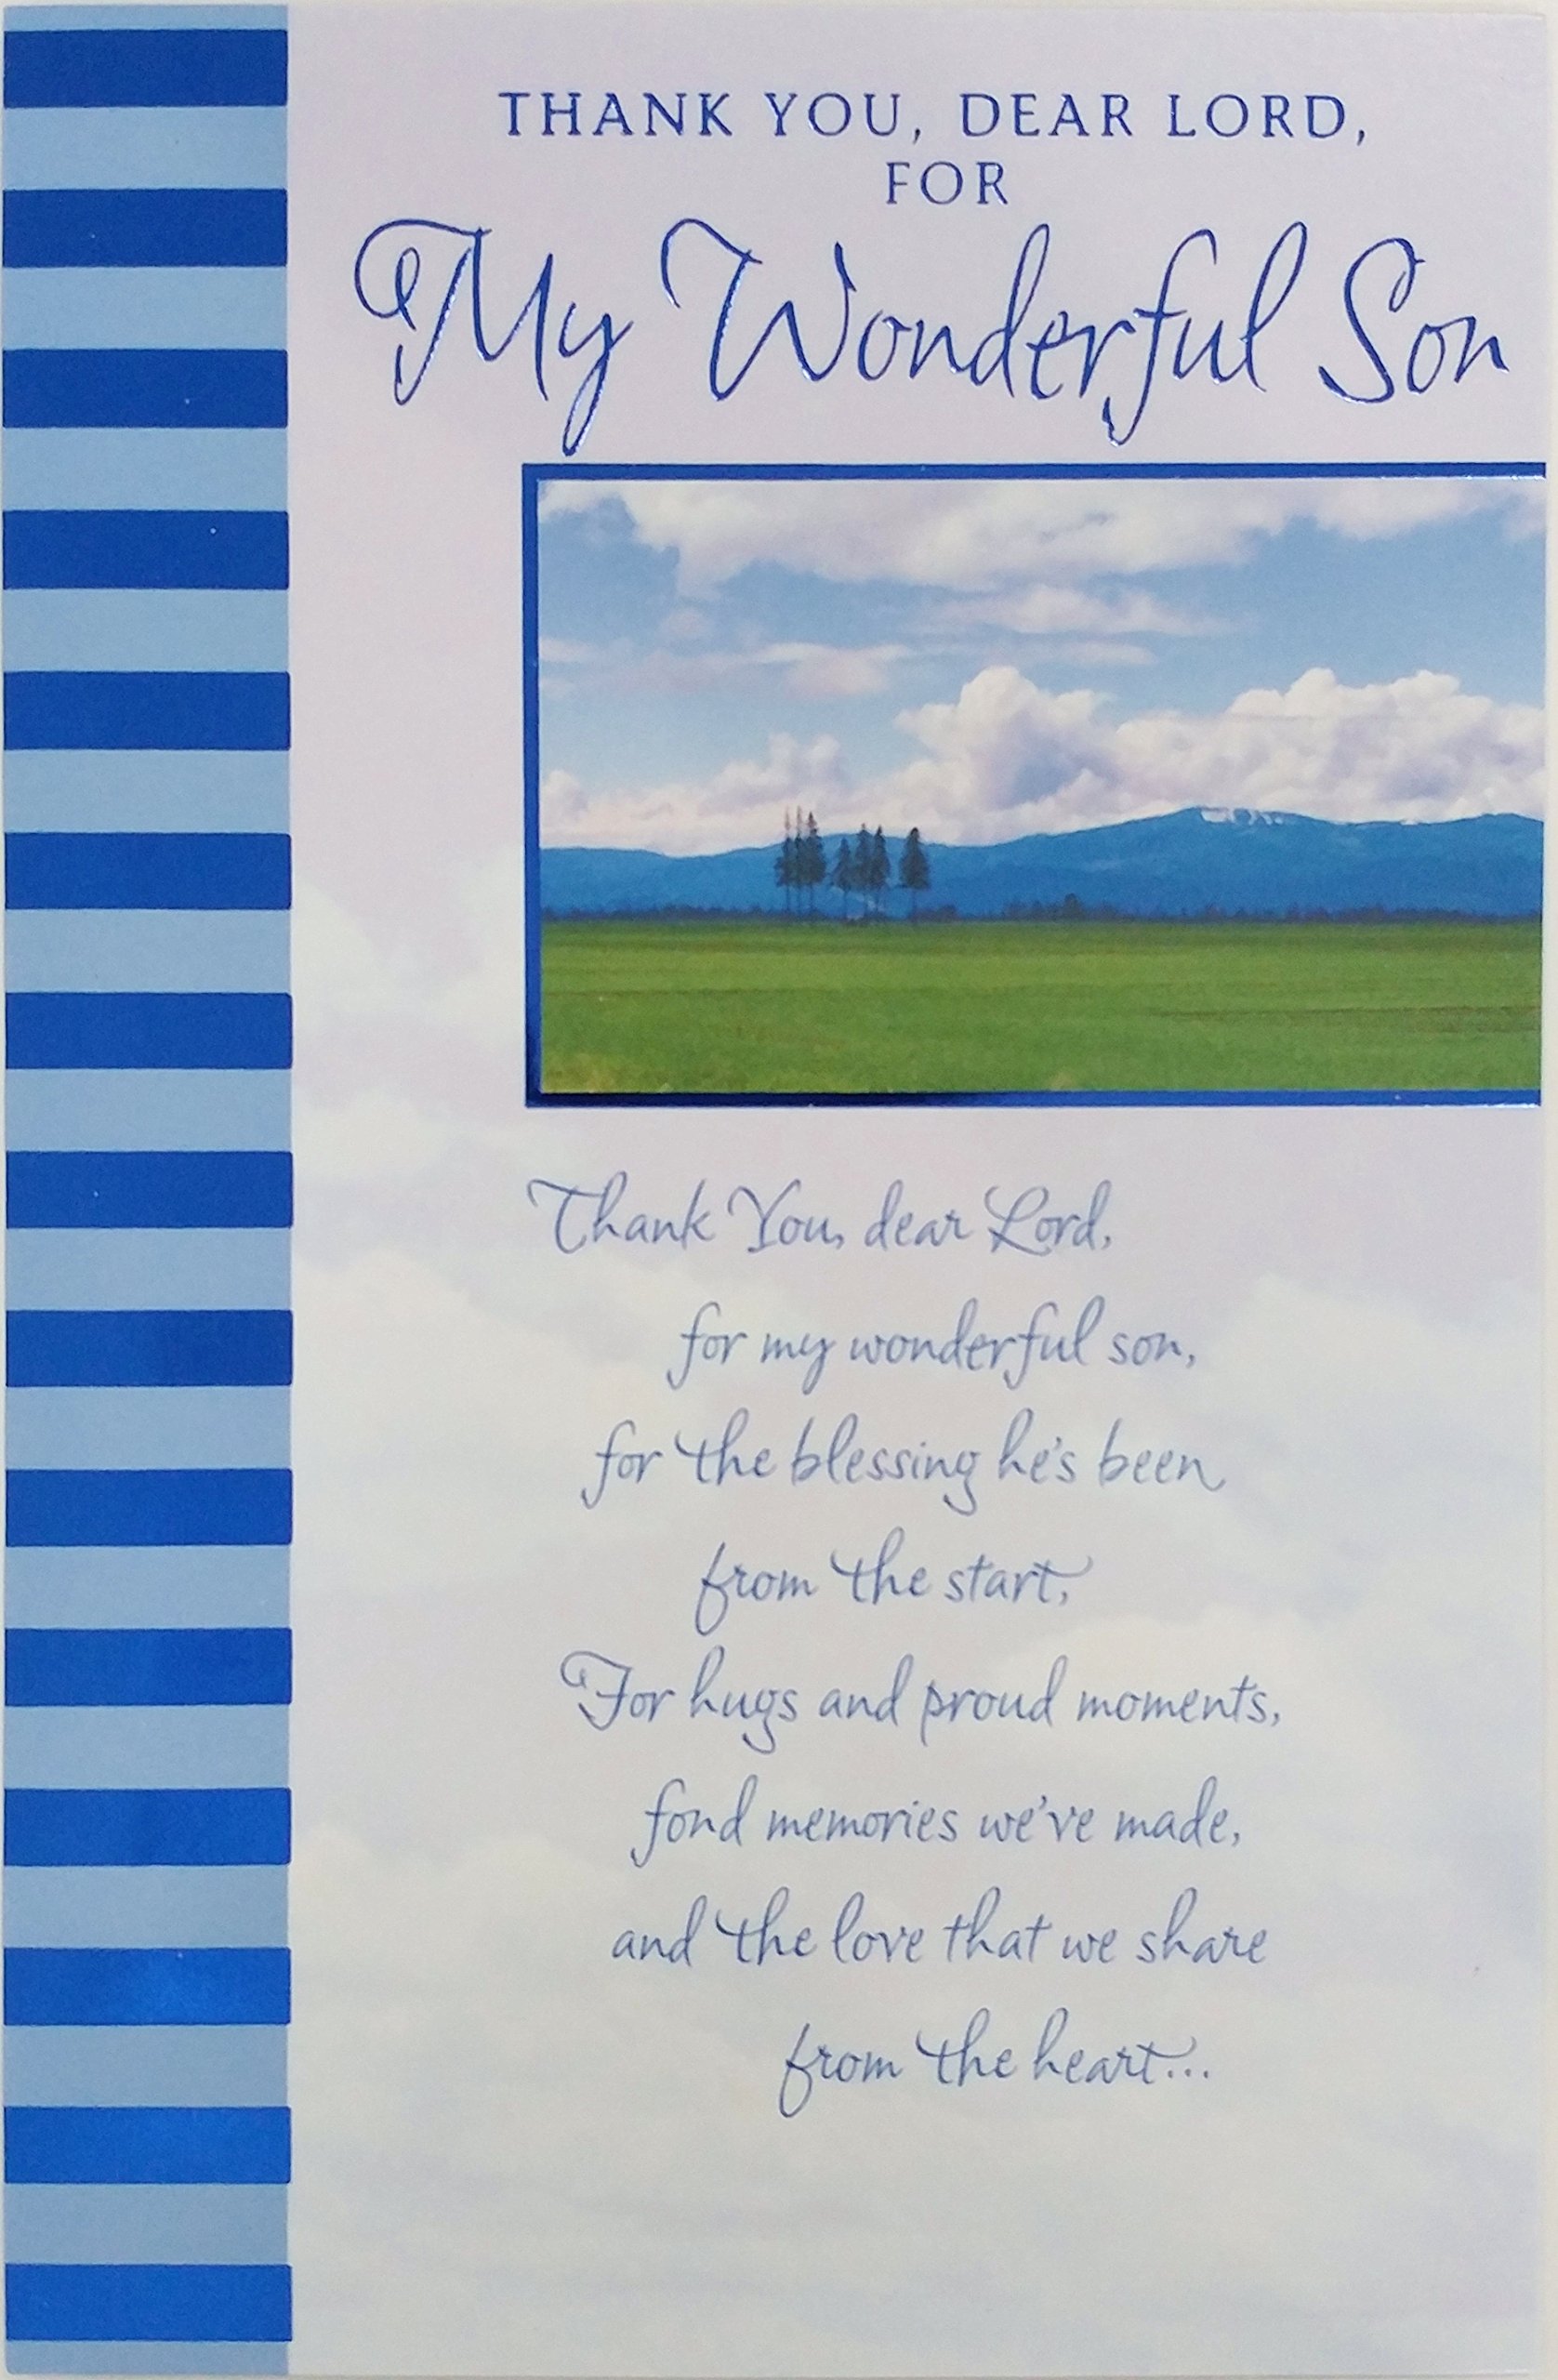 THANK YOU, DEAR LORD,
FOR
My Wonderful Son
Thank You, dear Lord,
for my wonderful son,
for the blessing he's been
from the start,
For hugs and proud moments,
fond memories we've made,
and the love that we share
from the heart...